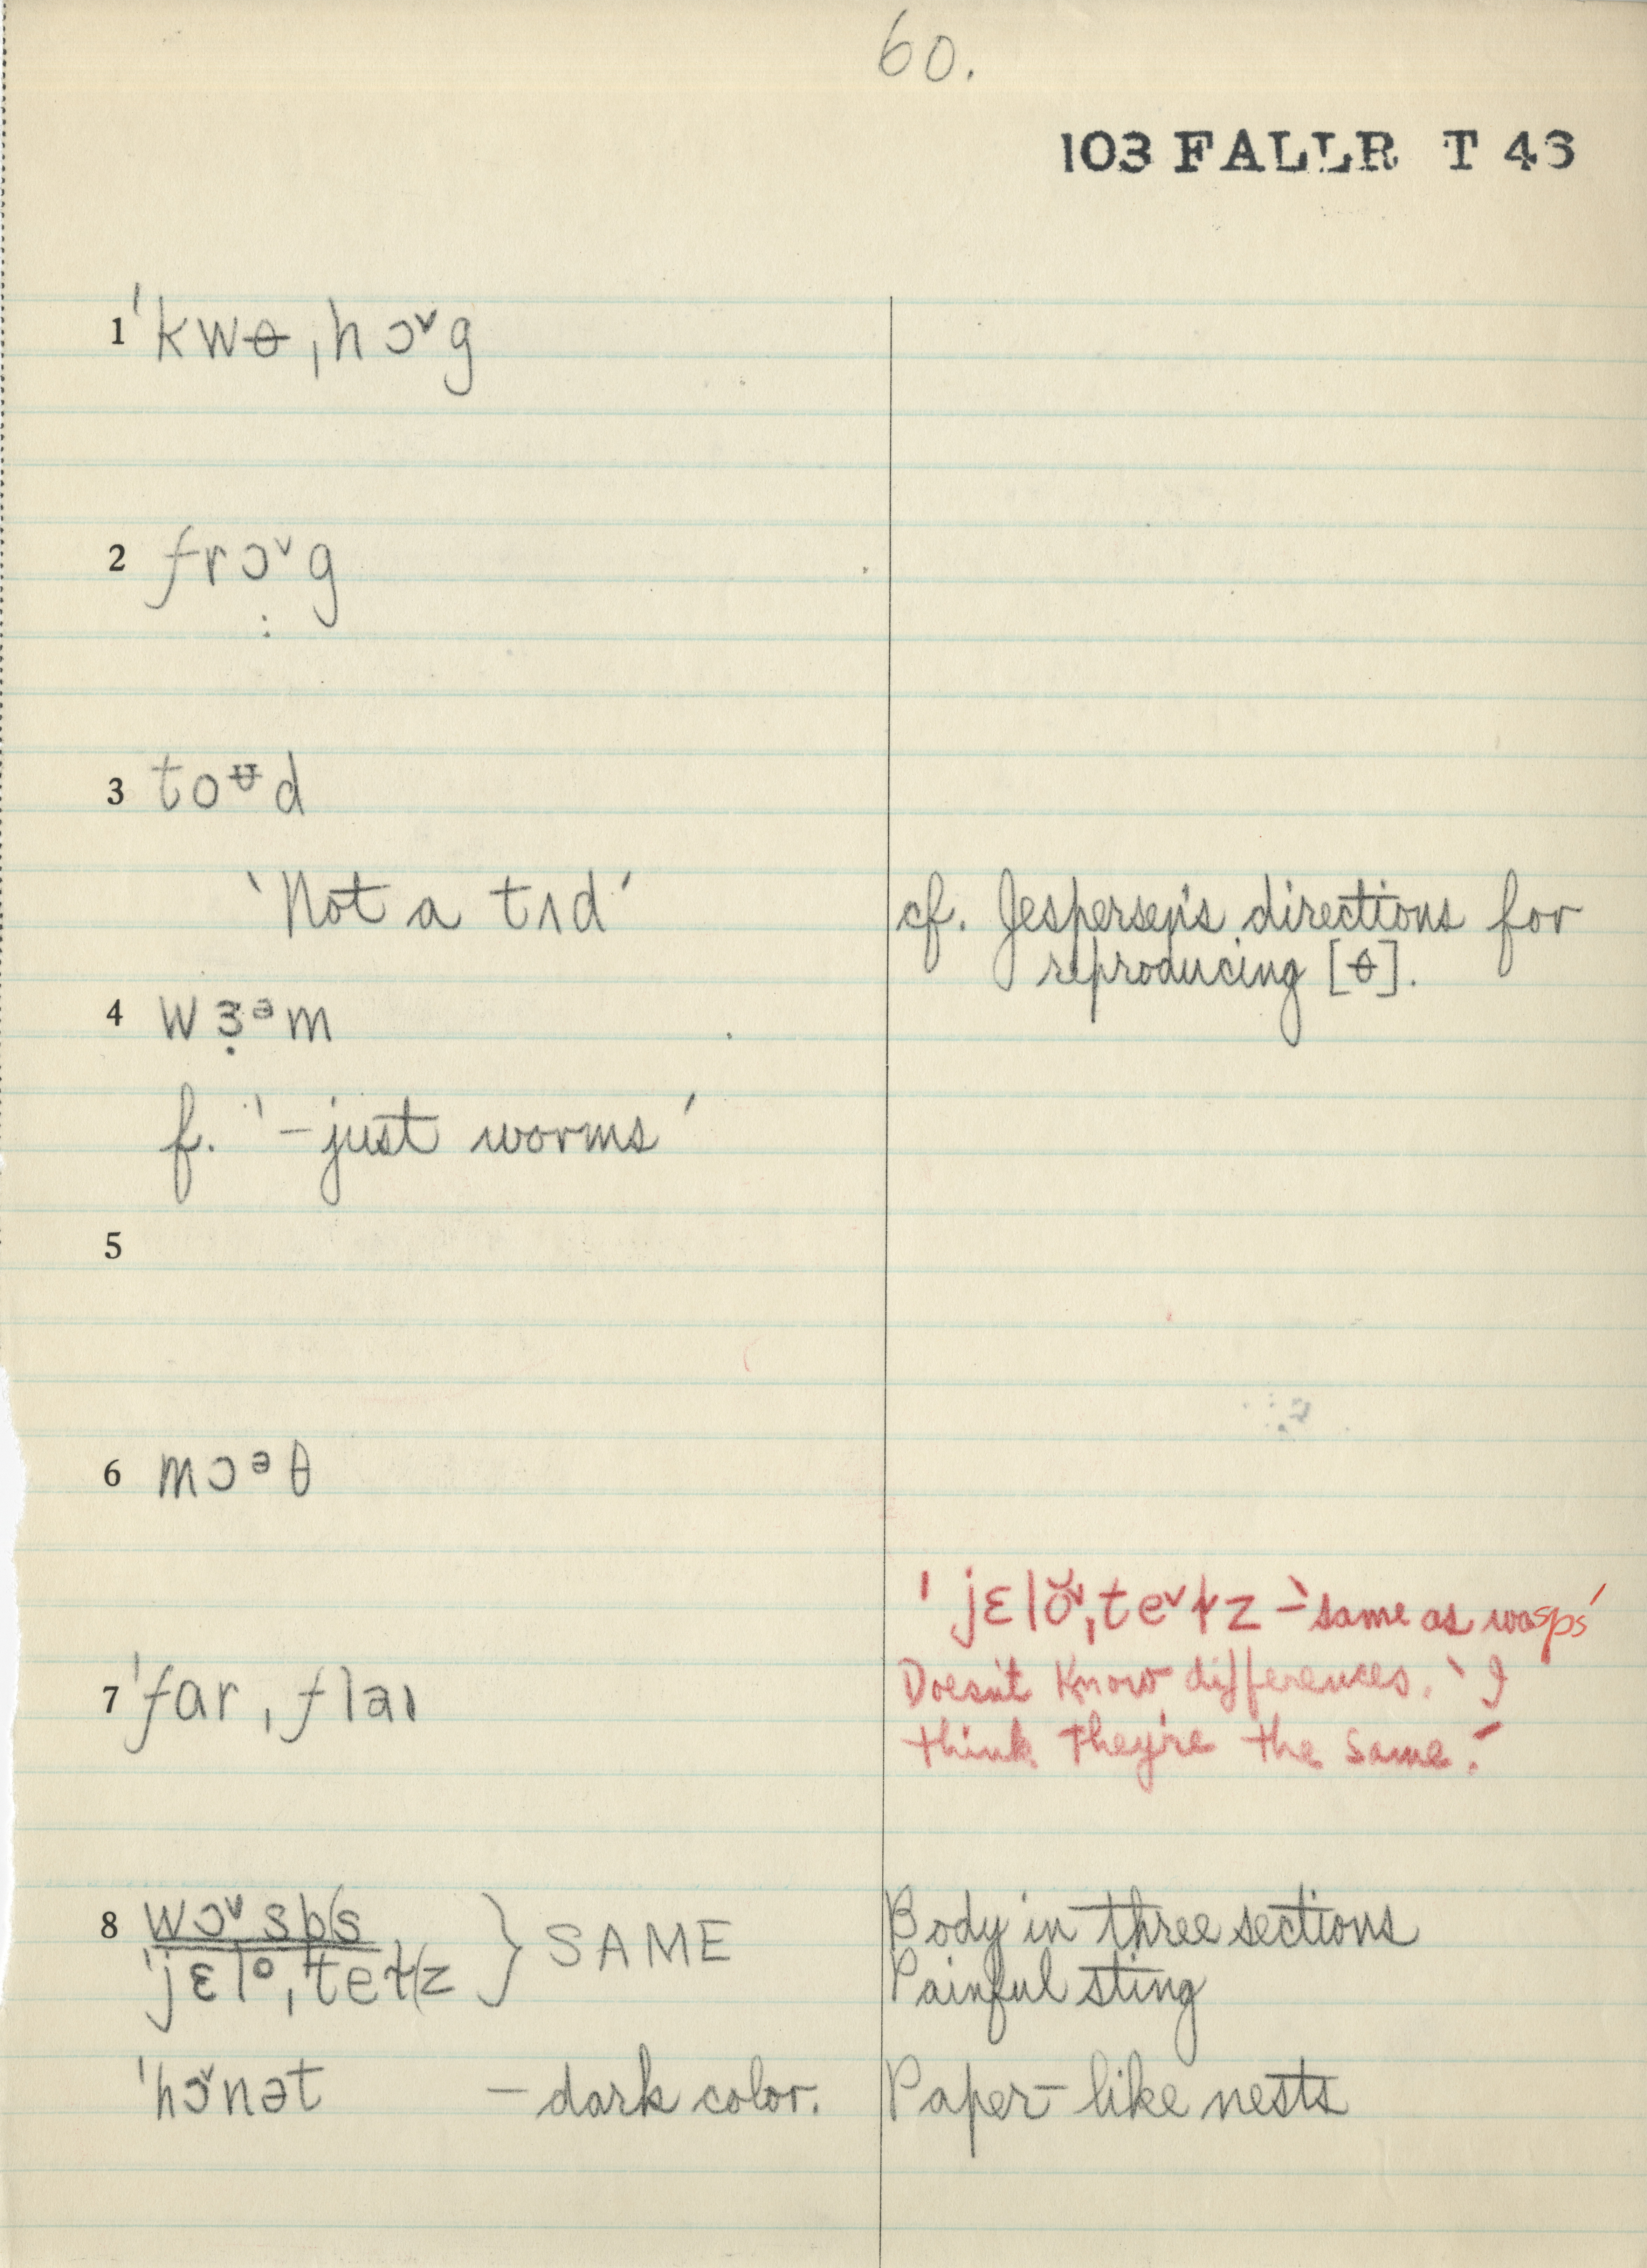 60.
103 FALLR T 43
1 ˈkwɵˌhɔᵛg
2 frɔᵛg
3 toᵾd
'Not a tʌd'
cf. Jespersen's directions for
reproducing [ɵ].
4 wɜ̣ᵊm
f. '–just worms'
5
6 mɔᵊθ
ˈjɛlŏᵛˌteᵛɫz – 'same as wasps'
Doesn't know differences. 'I
think they're the same.'
7 ˈfarˌflaɪ
8 wɔᵛsps
ˈjɛl°ˌteɫz } SAME
Body in three sections
Painful sting
ˈhɔᵛnət – dark color.
Paper-like nests